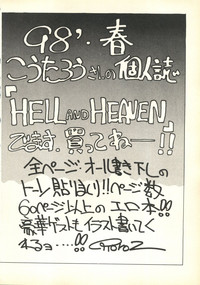 98'・春
こうたろうさんの個人誌
「HELL AND HEAVEN」
でます。買ってねー!!
全ページ・オール書き下しの
トーン貼りまくり!!ページ数
60ページ以上のエロ本!!
豪華ゲストもイラスト書いてく
れるョ…!!